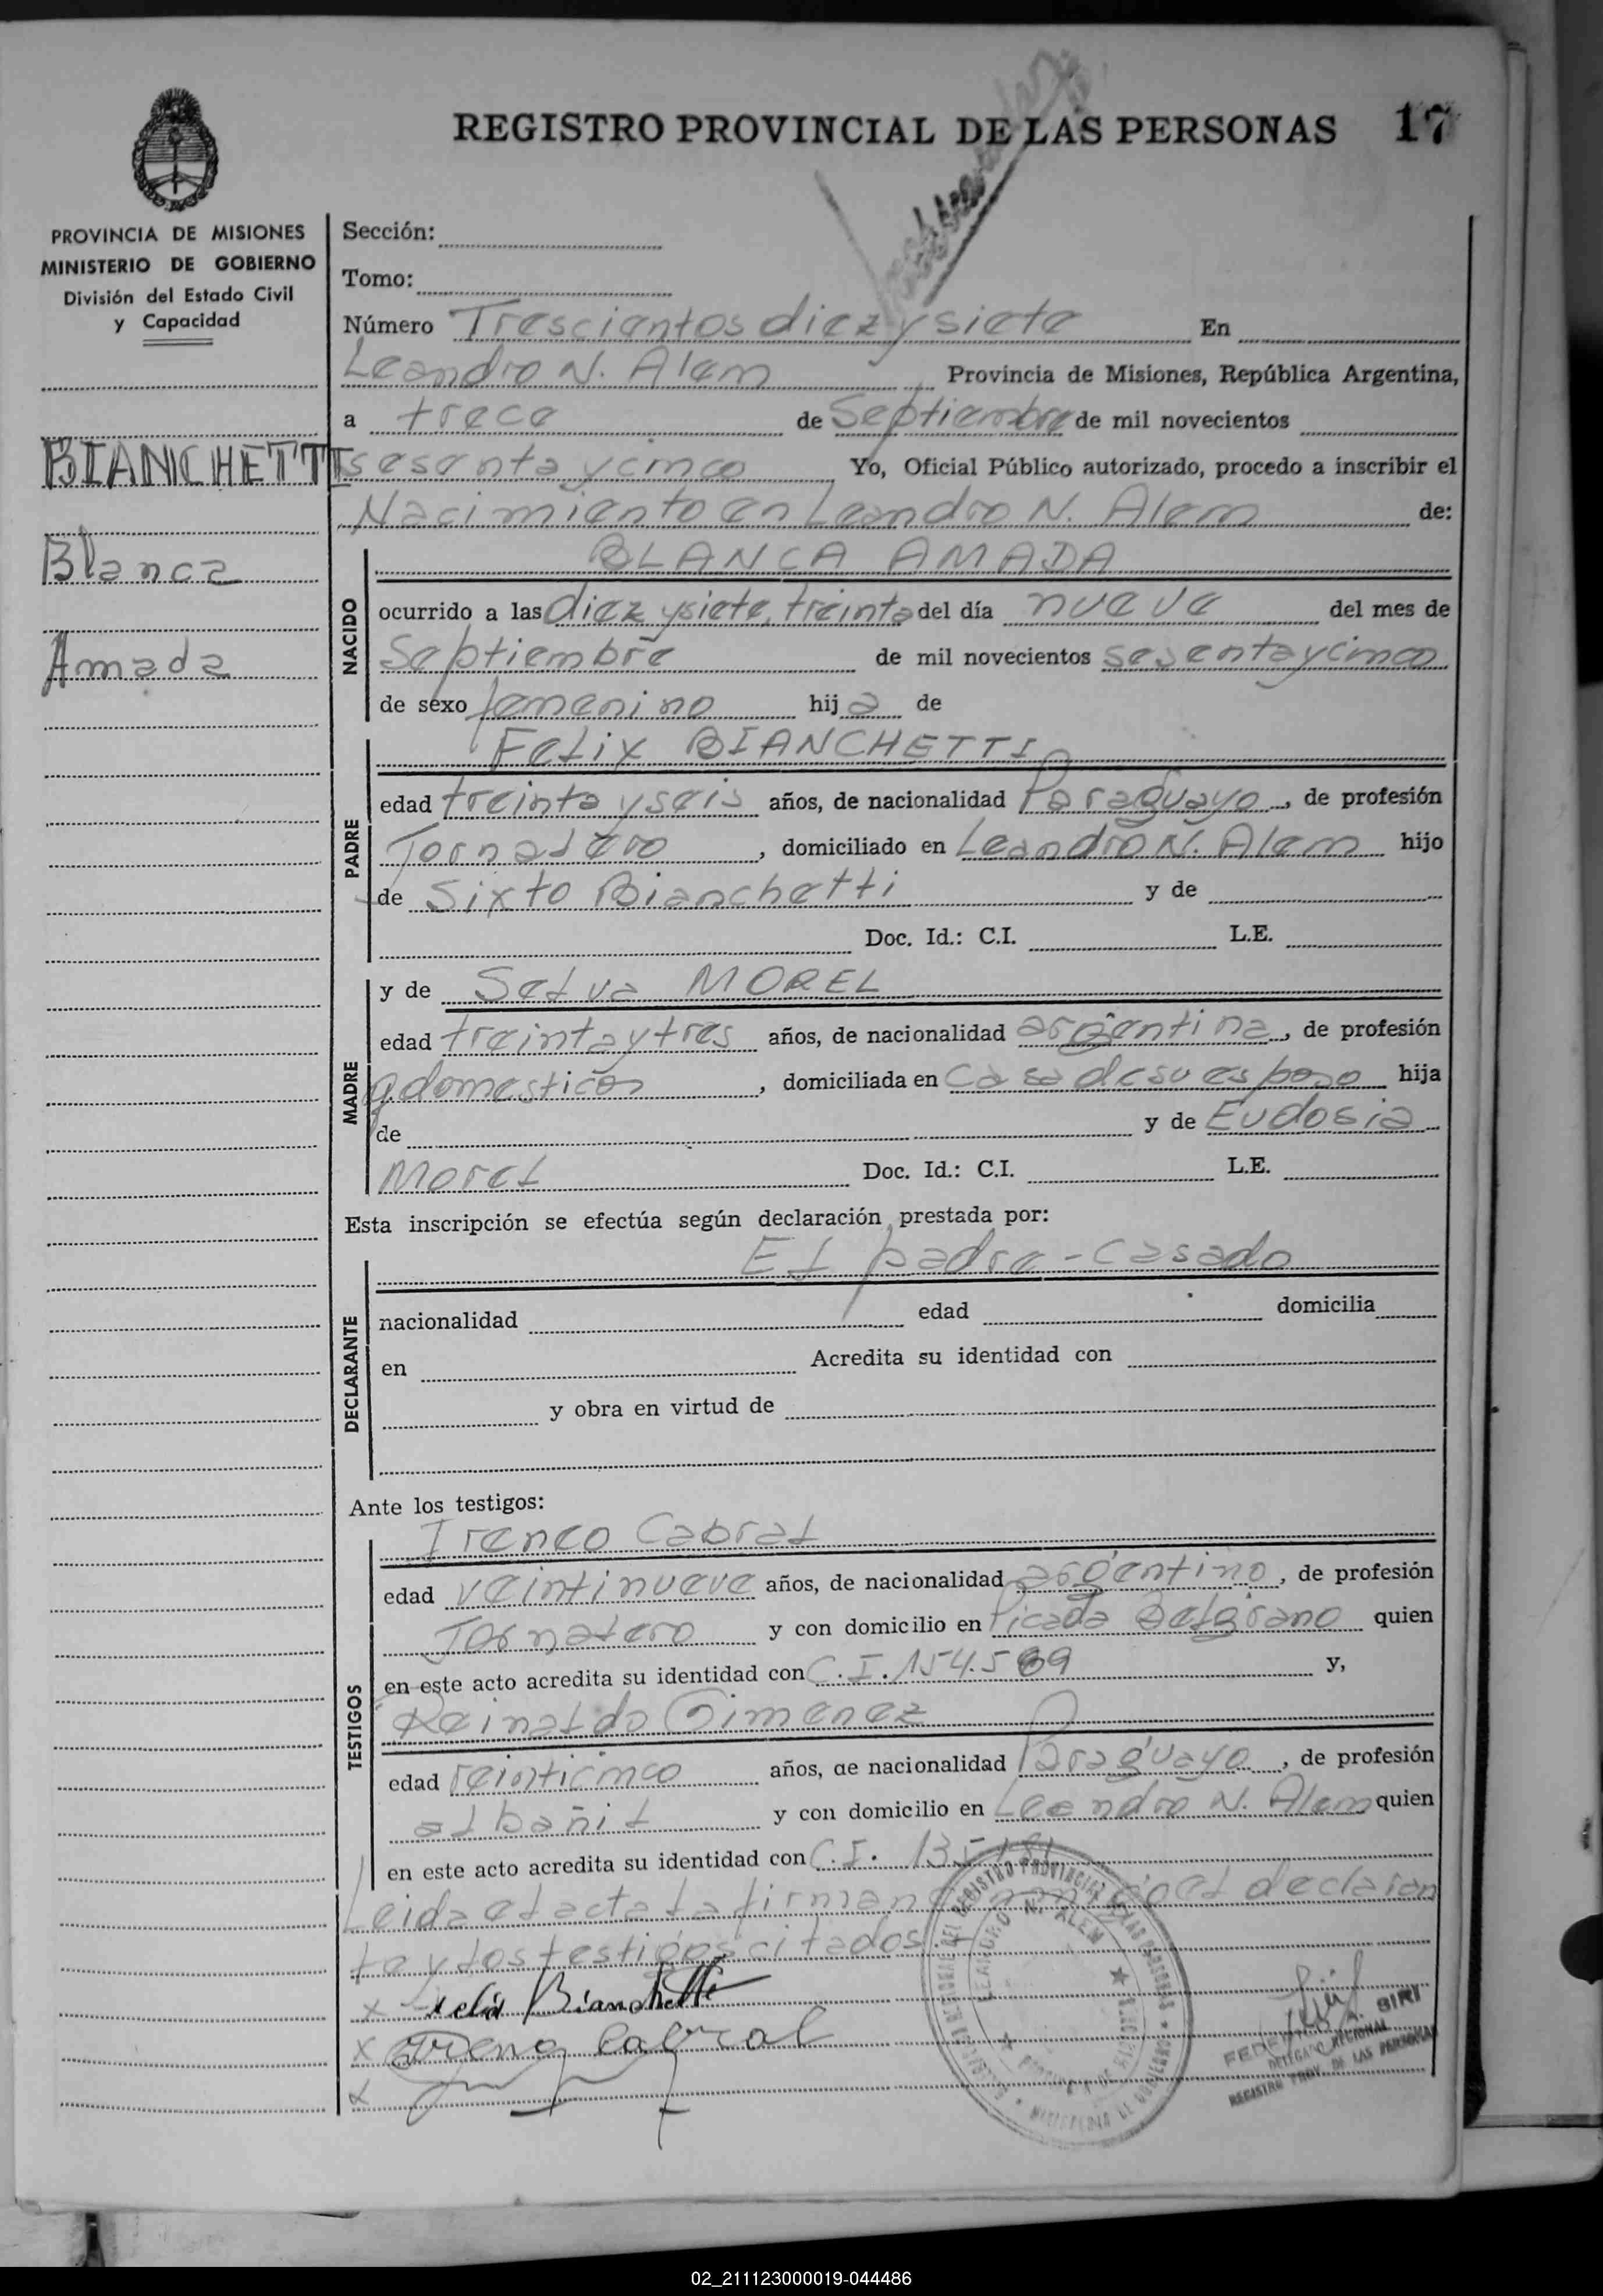 REGISTRO PROVINCIAL DE LAS PERSONAS 17
PROVINCIA DE MISIONES
MINISTERIO DE GOBIERNO
División del Estado Civil
y Capacidad
BIANCHETTI
Blanca
Amada
Sección:
Tomo:
Número Trescientos diez y siete En
Leandro N. Alem Provincia de Misiones, República Argentina,
a trece de Septiembre de mil novecientos
sesenta y cinco Yo, Oficial Público autorizado, procedo a inscribir el
Nacimiento en Leandro N. Alem de:
NACIDO
BLANCA AMADA
ocurrido a las diez y siete, treinta del día nueve del mes de
Septiembre de mil novecientos sesenta y cinco
de sexo femenino hija de
PADRE
Felix BIANCHETTI
edad treinta y seis años, de nacionalidad Paraguayo, de profesión
Jornalero, domiciliado en Leandro N. Alem hijo
de Sixto Bianchetti y de
Doc. Id.: C.I. L.E.
MADRE
y de Selva MOREL
edad treinta y tres años, de nacionalidad argentina, de profesión
q.domesticos, domiciliada en Casa de su esposo hija
de y de Eudosia
Morel Doc. Id.: C.I. L.E.
Esta inscripción se efectúa según declaración prestada por:
DECLARANTE
El padre - casado
nacionalidad edad domicilia
en Acredita su identidad con
y obra en virtud de
Ante los testigos:
TESTIGOS
Ireneo Cabral
edad veintinueve años, de nacionalidad argentino, de profesión
Jornalero y con domicilio en Picada Belgrano quien
en este acto acredita su identidad con C.I. 154.589 y,
Reinaldo Gimenez
edad veinticinco años, de nacionalidad Paraguayo, de profesión
albañil y con domicilio en Leandro N. Alem quien
en este acto acredita su identidad con C.I. 135.181
Leida el acta la firman conmigo el declaran
te y los testigos citados
x Felix Bianchetti
x Ireneo Cabral
x
REGISTRO PROVINCIAL DE LAS PERSONAS
LEANDRO N. ALEM
MINISTERIO DE GOBIERNO
A. SIRI
DELEGADO REGIONAL
REGISTRO PROV. DE LAS PERSONAS
02_211123000019-044486